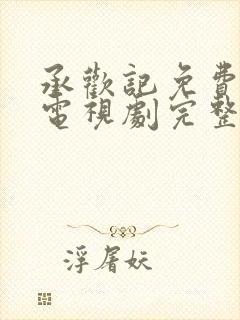 承歡記免費
電視劇完整
浮屠妖